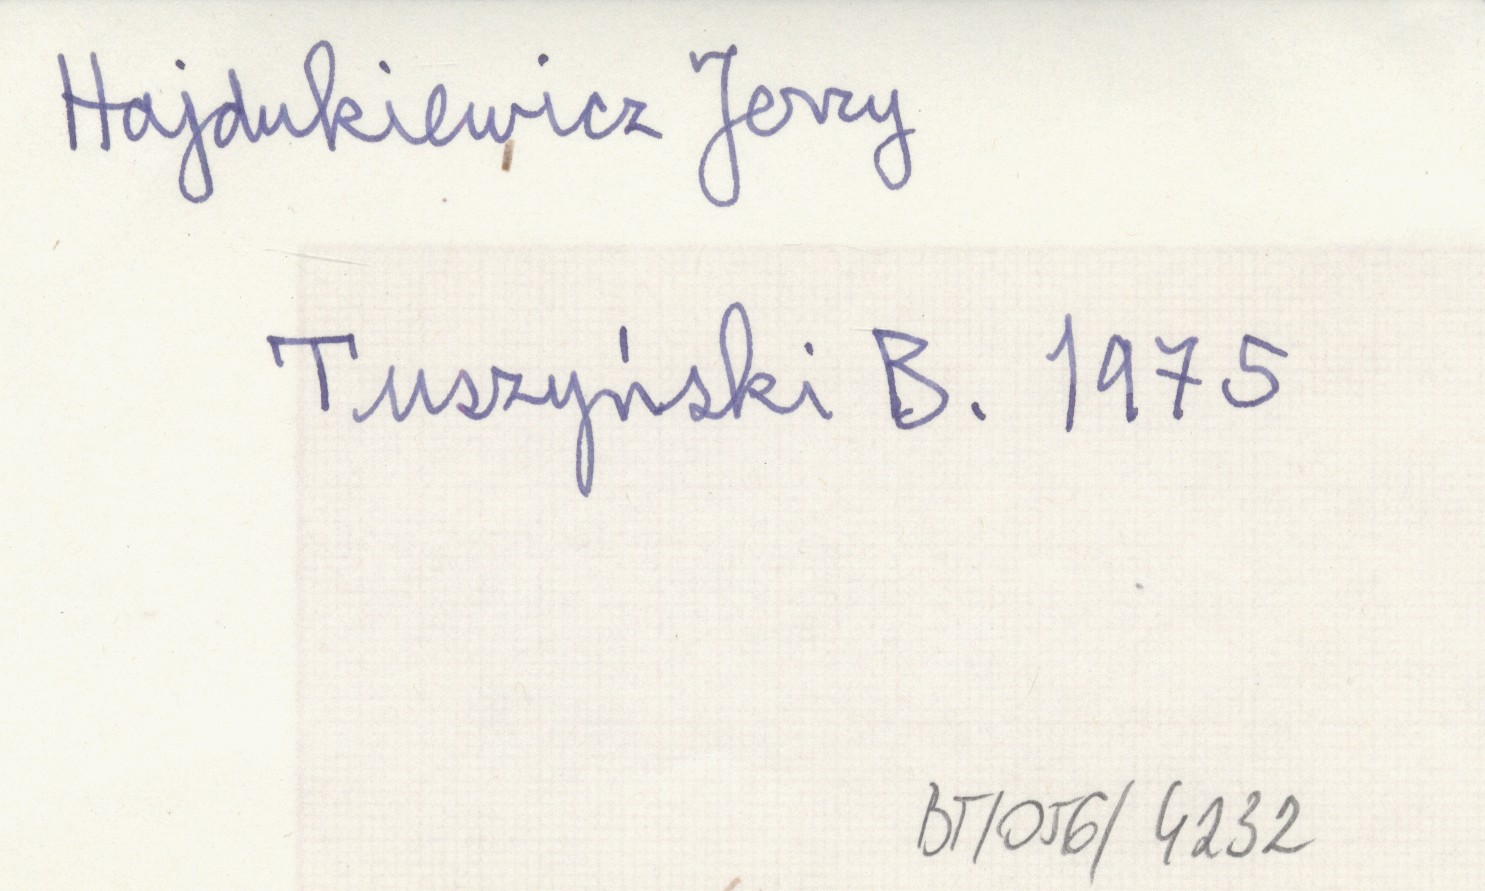 Hajdukiewicz Jerzy
Tuszyński B. 1975
BT/056/4232